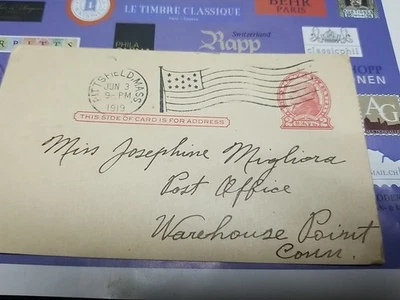 LE TIMBRE CLASSIQUE
BEHR
PARIS
PHILA
Switzerland
Rapp
classicphil
PITTSFIELD, MASS.
JUN 3
9-PM
1919
THIS SIDE OF CARD IS FOR ADDRESS
Miss Josephine Migliora
Post Office
Warehouse Point
Conn.
AG